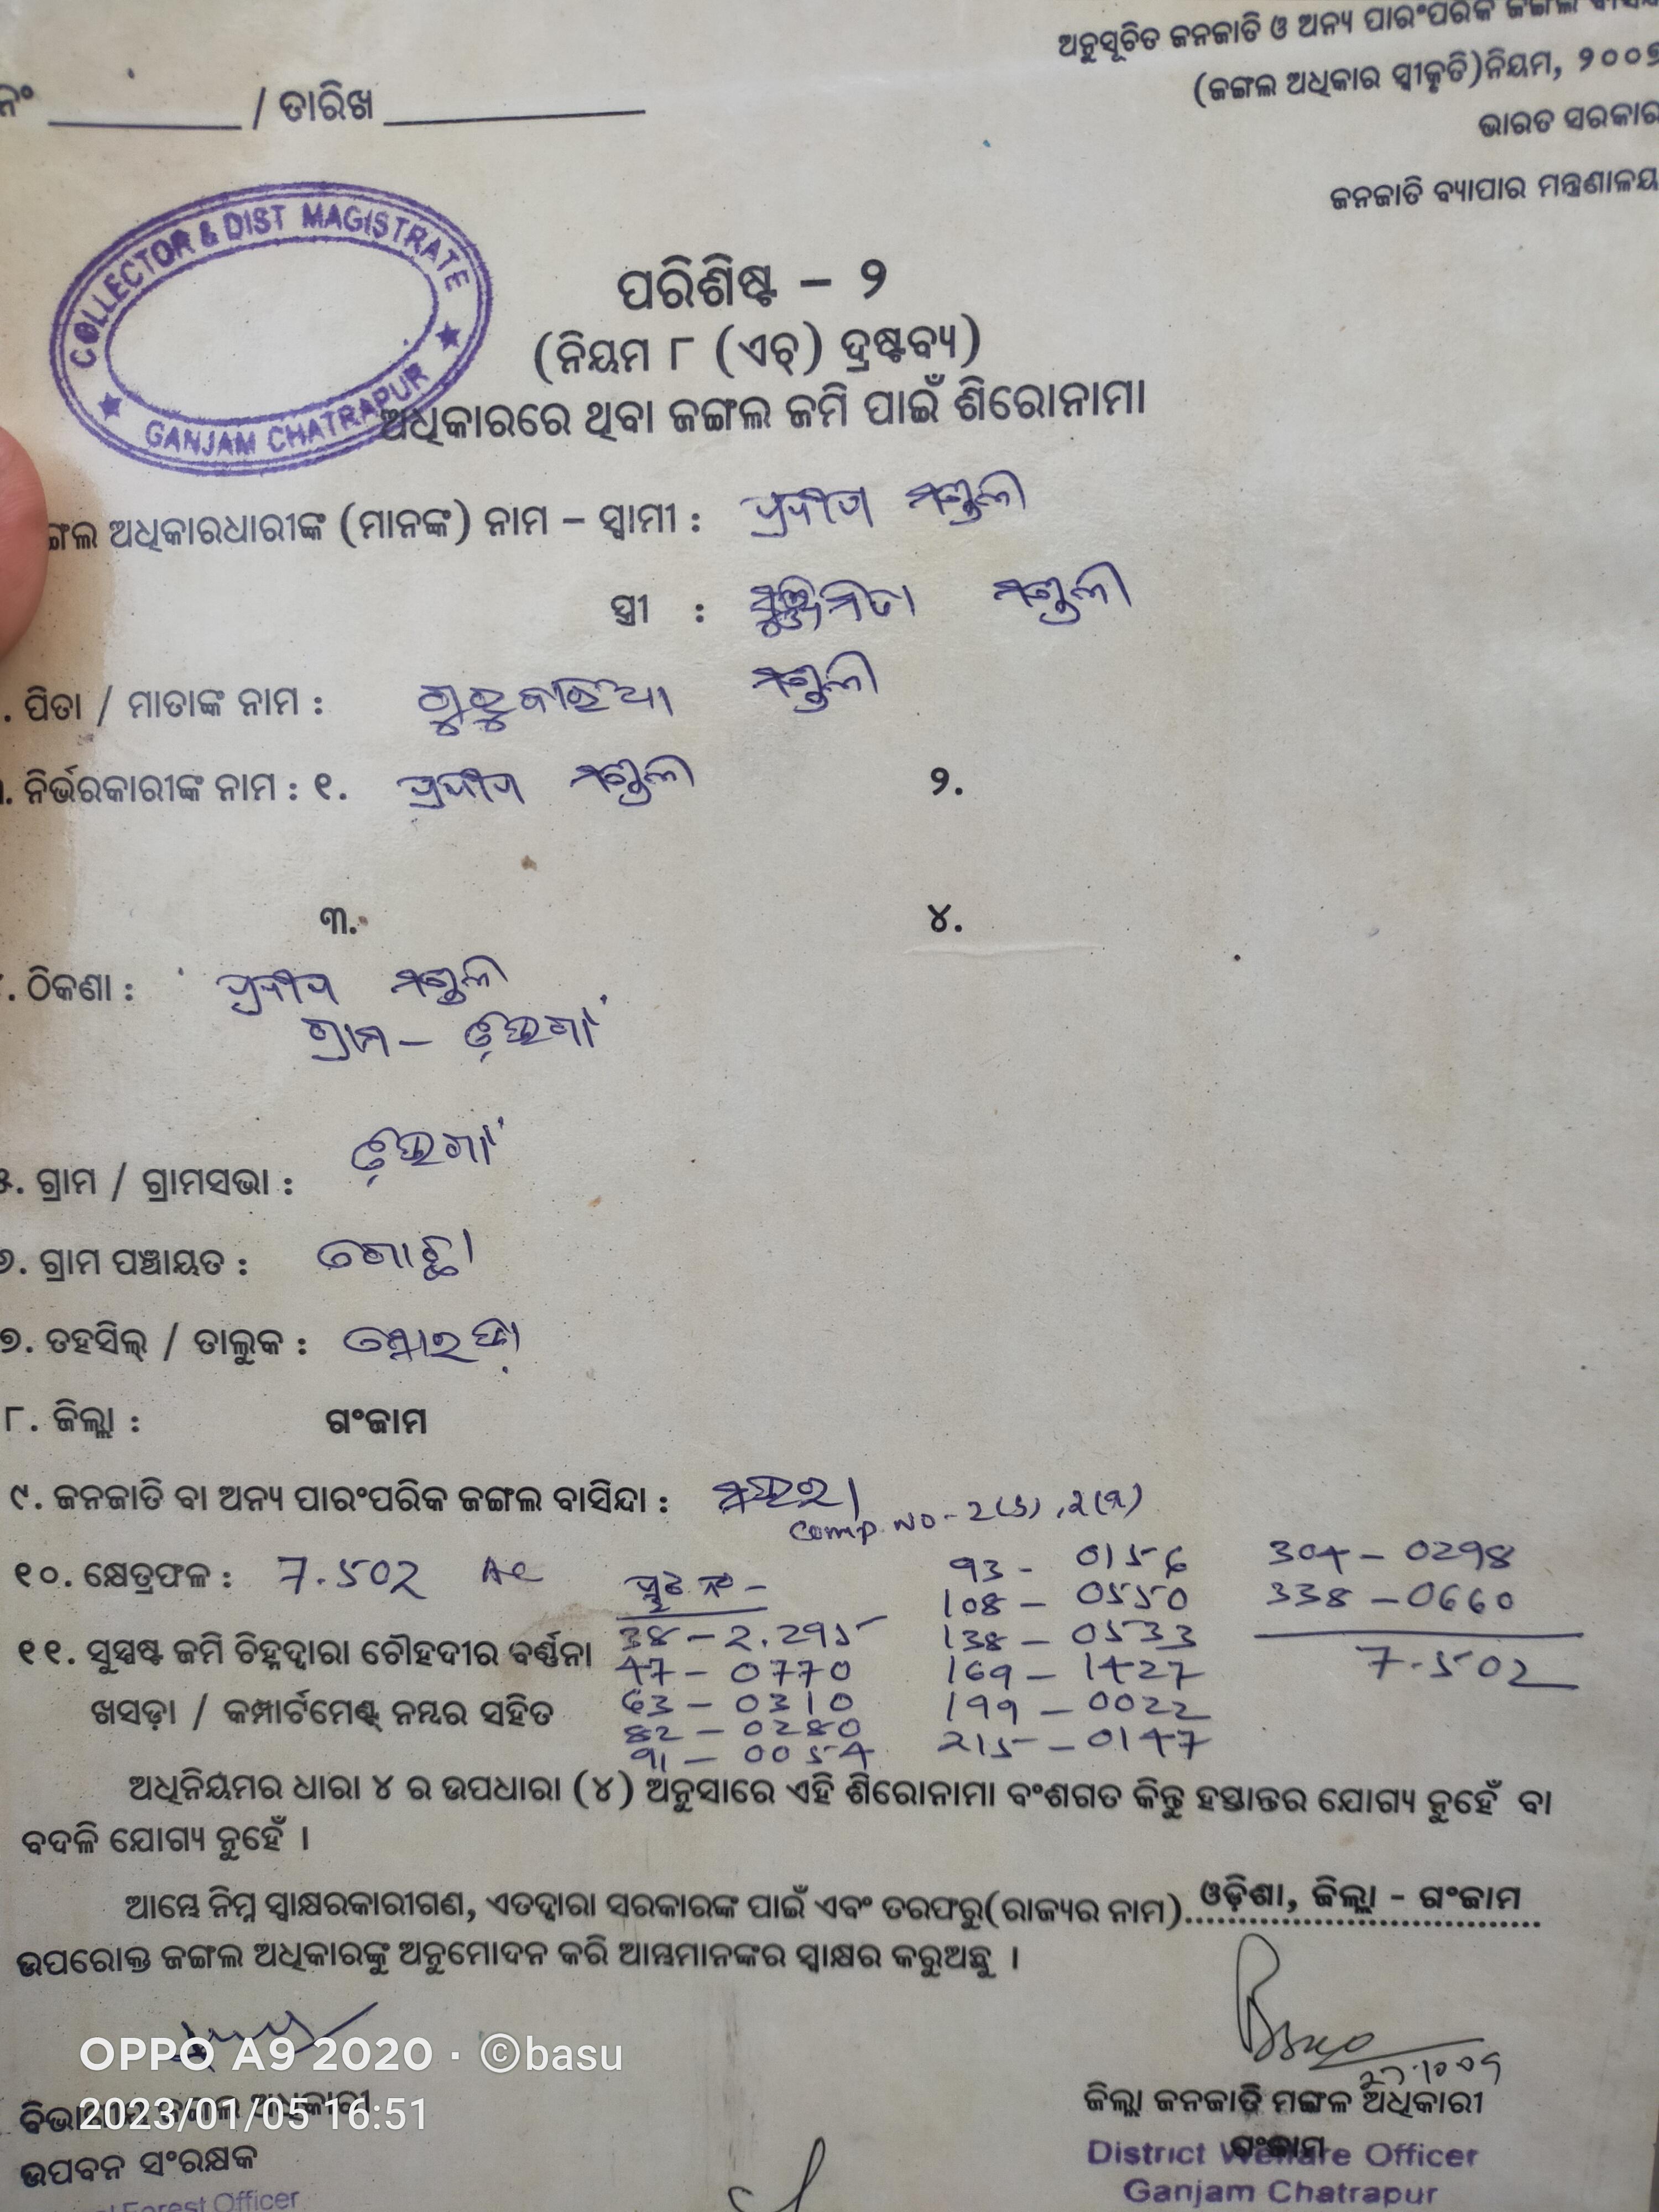 ଅନୁସୂଚିତ ଜନଜାତି ଓ ଅନ୍ୟ ପାରଂପରିକ ଜଙ୍ଗଲ
(ଜଙ୍ଗଲ ଅଧିକାର ସ୍ୱୀକୃତି)ନିୟମ, ୨୦୦୭
ଭାରତ ସରକାର
ଜନଜାତି ବ୍ୟାପାର ମନ୍ତ୍ରଣାଳୟ
ନଂ / ତାରିଖ
COLLECTOR & DIST MAGISTRATE
GANJAM CHATRAPUR
ପରିଶିଷ୍ଟ – ୨
(ନିୟମ ୮ (ଏଚ୍) ଦ୍ରଷ୍ଟବ୍ୟ)
ଅଧିକାରରେ ଥିବା ଜଙ୍ଗଲ ଜମି ପାଇଁ ଶିରୋନାମା
ଅଧିକାରଧାରୀଙ୍କ (ମାନଙ୍କ) ନାମ – ସ୍ୱାମୀ : ପ୍ରଦୀପ ମଣ୍ଡଳ
ସ୍ତ୍ରୀ : ମଣ୍ଡଳ
. ପିତା / ମାତାଙ୍କ ନାମ : ମଣ୍ଡଳ
. ନିର୍ଭରକାରୀଙ୍କ ନାମ : ୧. ପ୍ରଦୀପ ମଣ୍ଡଳ ୨.
୩. ୪.
. ଠିକଣା : ପ୍ରଦୀପ ମଣ୍ଡଳ
ଗ୍ରାମ –
୫. ଗ୍ରାମ / ଗ୍ରାମସଭା :
୬. ଗ୍ରାମ ପଞ୍ଚାୟତ :
୭. ତହସିଲ୍ / ତାଲୁକ :
୮. ଜିଲ୍ଲା : ଗଂଜାମ
୯. ଜନଜାତି ବା ଅନ୍ୟ ପାରଂପରିକ ଜଙ୍ଗଲ ବାସିନ୍ଦା :
Comp. No -
୧୦. କ୍ଷେତ୍ରଫଳ : 7.502 Ac
ପ୍ଲଟ ନଂ –
୧୧. ସୁସ୍ପଷ୍ଟ ଜମି ଚିହ୍ନଦ୍ୱାରା ଚୌହଦୀର ବର୍ଣ୍ଣନା
ଖସଡ଼ା / କମ୍ପାର୍ଟମେଣ୍ଟ୍ ନମ୍ବର ସହିତ
38 – 2.295
47 – 0770
63 – 0310
82 – 0280
91 – 0054
93 - 0156
108 – 0550
138 – 0533
169 – 1427
199 – 0022
215 – 0147
304 – 0298
338 – 0660
7.502
ଅଧିନିୟମର ଧାରା ୪ ର ଉପଧାରା (୪) ଅନୁସାରେ ଏହି ଶିରୋନାମା ବଂଶଗତ କିନ୍ତୁ ହସ୍ତାନ୍ତର ଯୋଗ୍ୟ ନୁହେଁ ବା
ବଦଳି ଯୋଗ୍ୟ ନୁହେଁ ।
ଆମ୍ଭେ ନିମ୍ନ ସ୍ୱାକ୍ଷରକାରୀଗଣ, ଏତଦ୍ୱାରା ସରକାରଙ୍କ ପାଇଁ ଏବଂ ତରଫରୁ(ରାଜ୍ୟର ନାମ) ଓଡ଼ିଶା, ଜିଲ୍ଲା - ଗଂଜାମ
ଉପରୋକ୍ତ ଜଙ୍ଗଲ ଅଧିକାରଙ୍କୁ ଅନୁମୋଦନ କରି ଆମ୍ଭମାନଙ୍କର ସ୍ୱାକ୍ଷର କରୁଅଛୁ ।
OPPO A9 2020 · ©basu
2023/01/05 16:51
ଉପବନ ସଂରକ୍ଷକ
Forest Officer
ଜିଲ୍ଲା ଜନଜାତି ମଙ୍ଗଳ ଅଧିକାରୀ
ଗଂଜାମ
District Welfare Officer
Ganjam Chatrapur